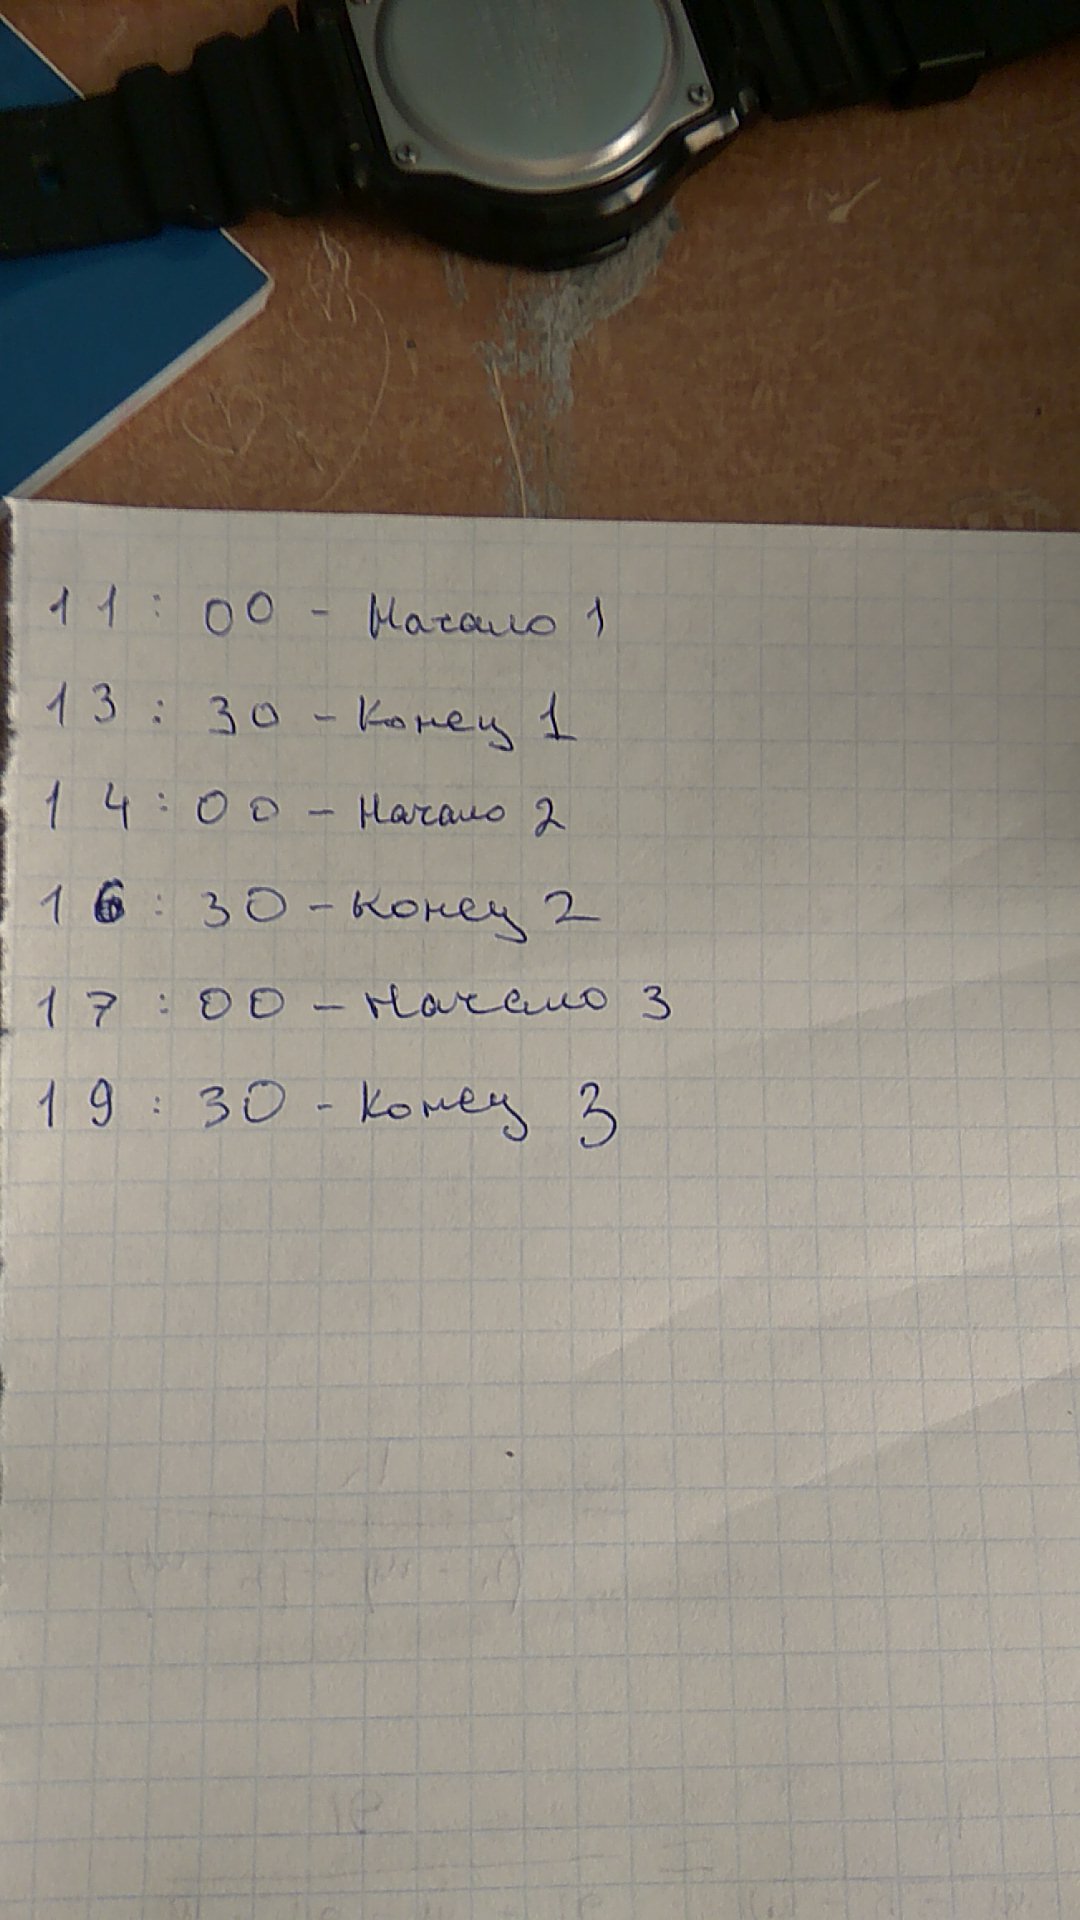 11:00 - Начало 1
13:30 - Конец 1
14:00 - Начало 2
16:30 - Конец 2
17:00 - Начало 3
19:30 - Конец 3